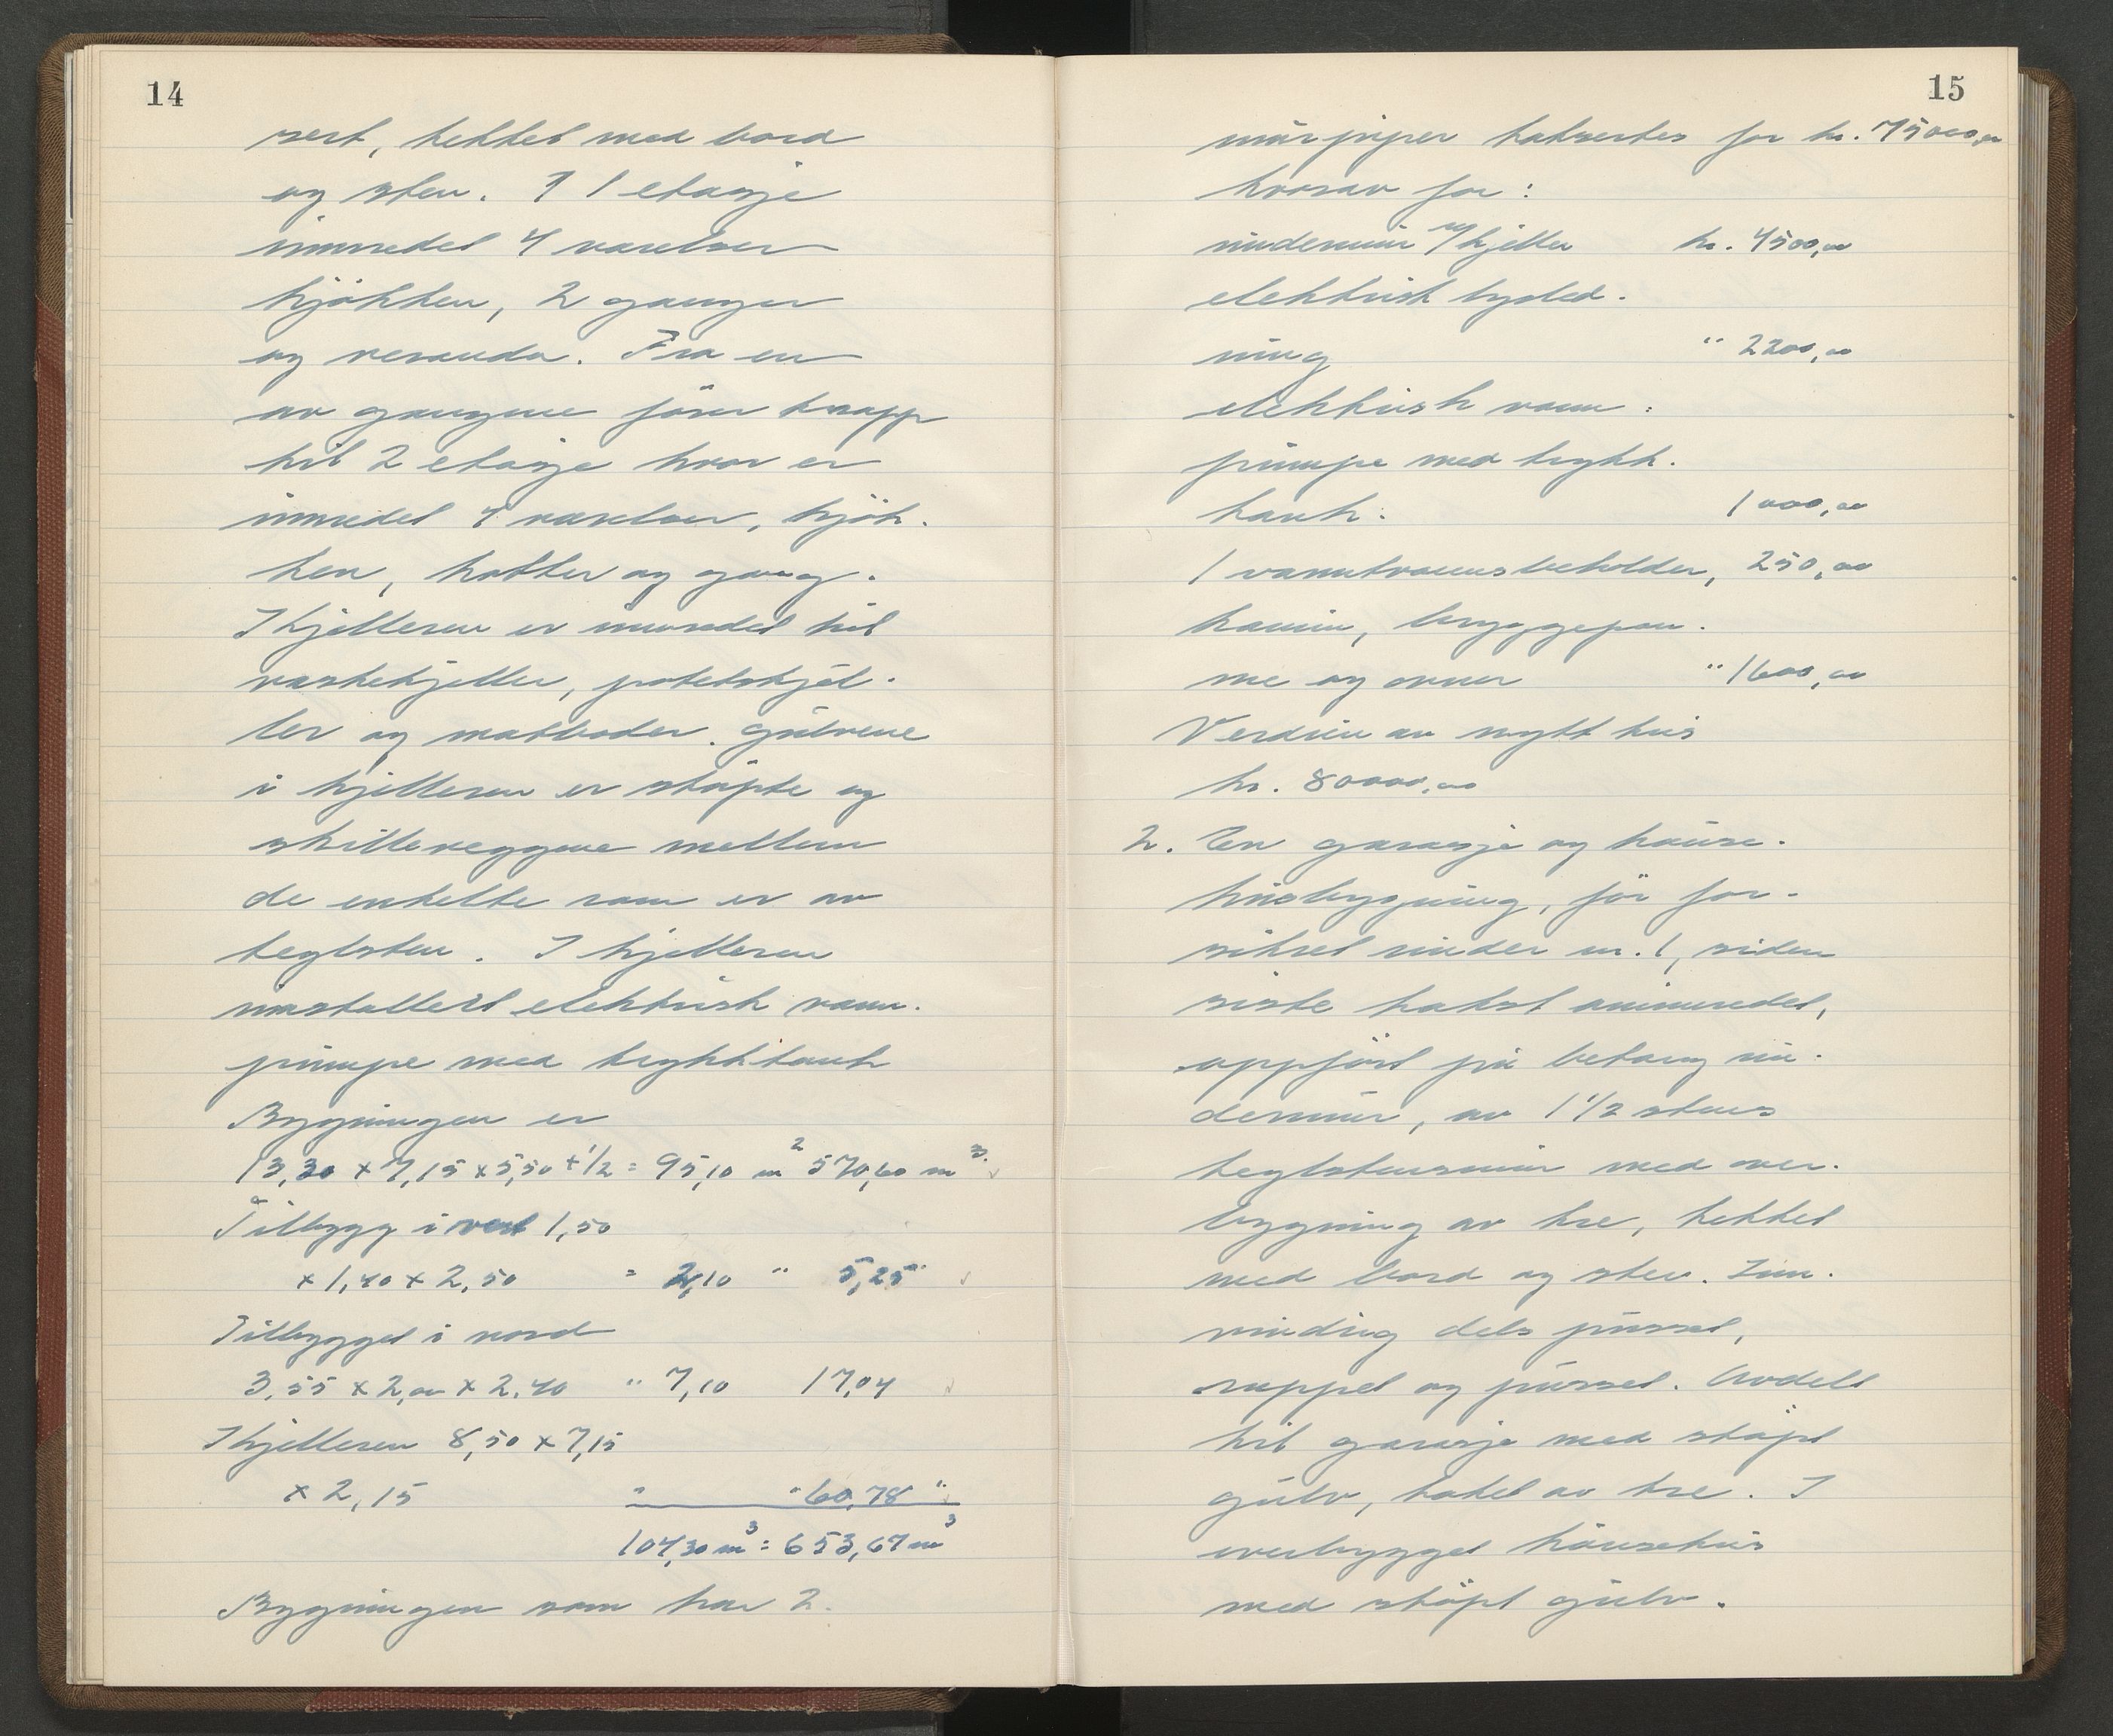 14
sert, tekket med bord
og sten. I 1 etasje
innredet 4 værelser
kjökken, 2 ganger
og veranda. Fra en
av gangene förer trapp
til 2 etasje hvor er
innredet 4 værelser, kjök-
ken, kotter og gang.
I kjelleren er innredet til
vaskekjeller, potetskjel-
ler og matboder. Gulvene
i kjelleren er stöpte og
skilleveggene mellem
de enkelte rom er av
teglsten. I kjelleren
installert elektrisk vann-
pumpe med trykktank
Bygningen er
13,30 x 7,15 x 5,50 + 1/2 = 95,10 m² 570,60 m³
Tilbygg i vest 1,50
x 1,40 x 2,50 = 2,10 " 5,25 "
Tilbygget i nord
3,55 x 2,00 x 2,40 " 7,10 17,04
I kjelleren 8,50 x 7,15
x 2,15 " " 60,78 "
104,30 m³ = 653,67 m³
Bygningen som har 2
15
murpiper takseres for kr. 75000,00
hvorav for:
undermur m/kjeller kr. 4500,00
elektrisk lysled-
ning " 2200,00
elektrisk vann-
pumpe med trykk-
tank. 1000,00
1 varmtvannsbeholder, 250,00
kamin, bryggepan-
ne og ovner " 1600,00
Verdien av nytt hus
kr. 80000,00
2. En garasje og hönse-
husbygning, för for-
sikret under nr. 1, siden
siste takst ominnredet,
oppfört på betong un-
dermur, av 1 1/2 stens
teglstensmur med over-
bygning av tre, tekket
med bord og sten. Inn-
vendig dels pusset,
rappet og pusset. Avdelt
til garasje med stöpt
gulv, taket av tre. I
overbygget hönsehus
med stöpt gulv.